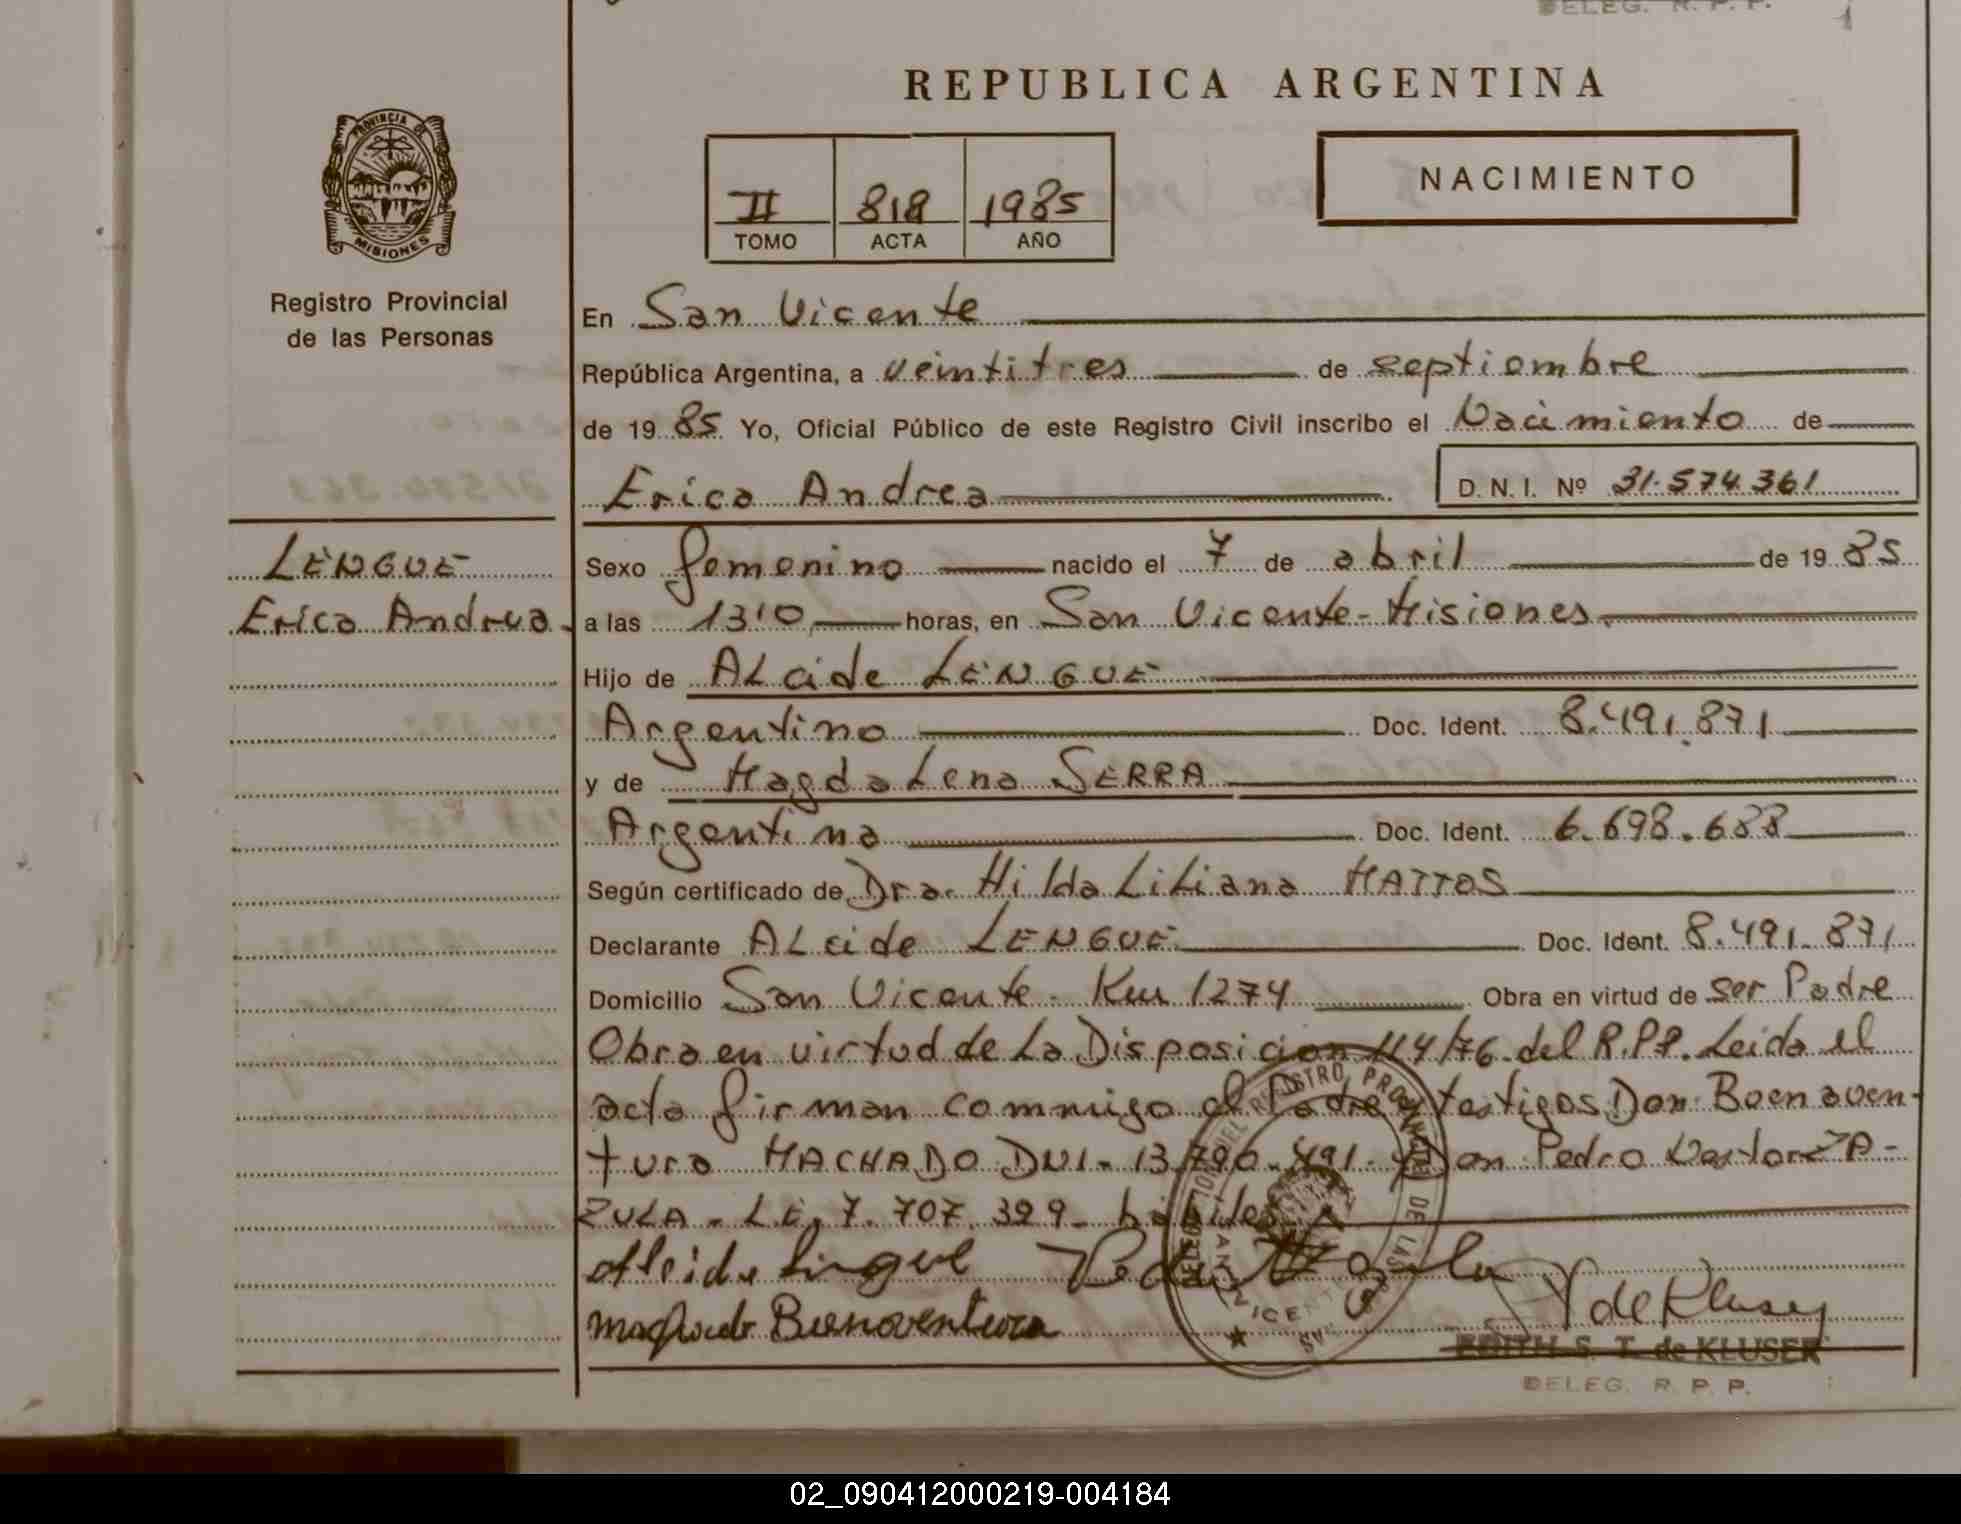 DELEG. R. P. P.
REPUBLICA ARGENTINA
PROVINCIA DE
MISIONES
Registro Provincial
de las Personas
II 818 1985
TOMO ACTA AÑO
NACIMIENTO
En San Vicente
República Argentina, a veintitres de septiembre
de 19 85 Yo, Oficial Público de este Registro Civil inscribo el Nacimiento de
Erica Andrea D. N. I. Nº 31.574.361
LENGUE
Erica Andrea
Sexo femenino nacido el 7 de abril de 19 85
a las 13'10 horas, en San Vicente - Misiones
Hijo de ALcide LENGUE
Argentino Doc. Ident. 8.491.871
y de Magdalena SERRA
Argentina Doc. Ident. 6.698.688
Según certificado de Dra. Hilda Liliana MATTOS
Declarante ALcide LENGUE Doc. Ident. 8.491.871
Domicilio San Vicente - Km 1274 Obra en virtud de ser Padre
Obra en virtud de La Disposicion 114/76 del R.P.P. Leida el
acta firman conmigo el Padre y testigos Don Buenaven-
tura MACHADO DNI - 13.796.491 - y Don Pedro ZA-
ZULA - L.E. 7.707.399 - habiles
Alcide Lengue
de Kluser
Machado Buenaventura
EDITH S. T. de KLUSER
DELEG. R. P. P.
REGISTRO PROVINCIAL DE LAS
SAN VICENTE
02_090412000219-004184